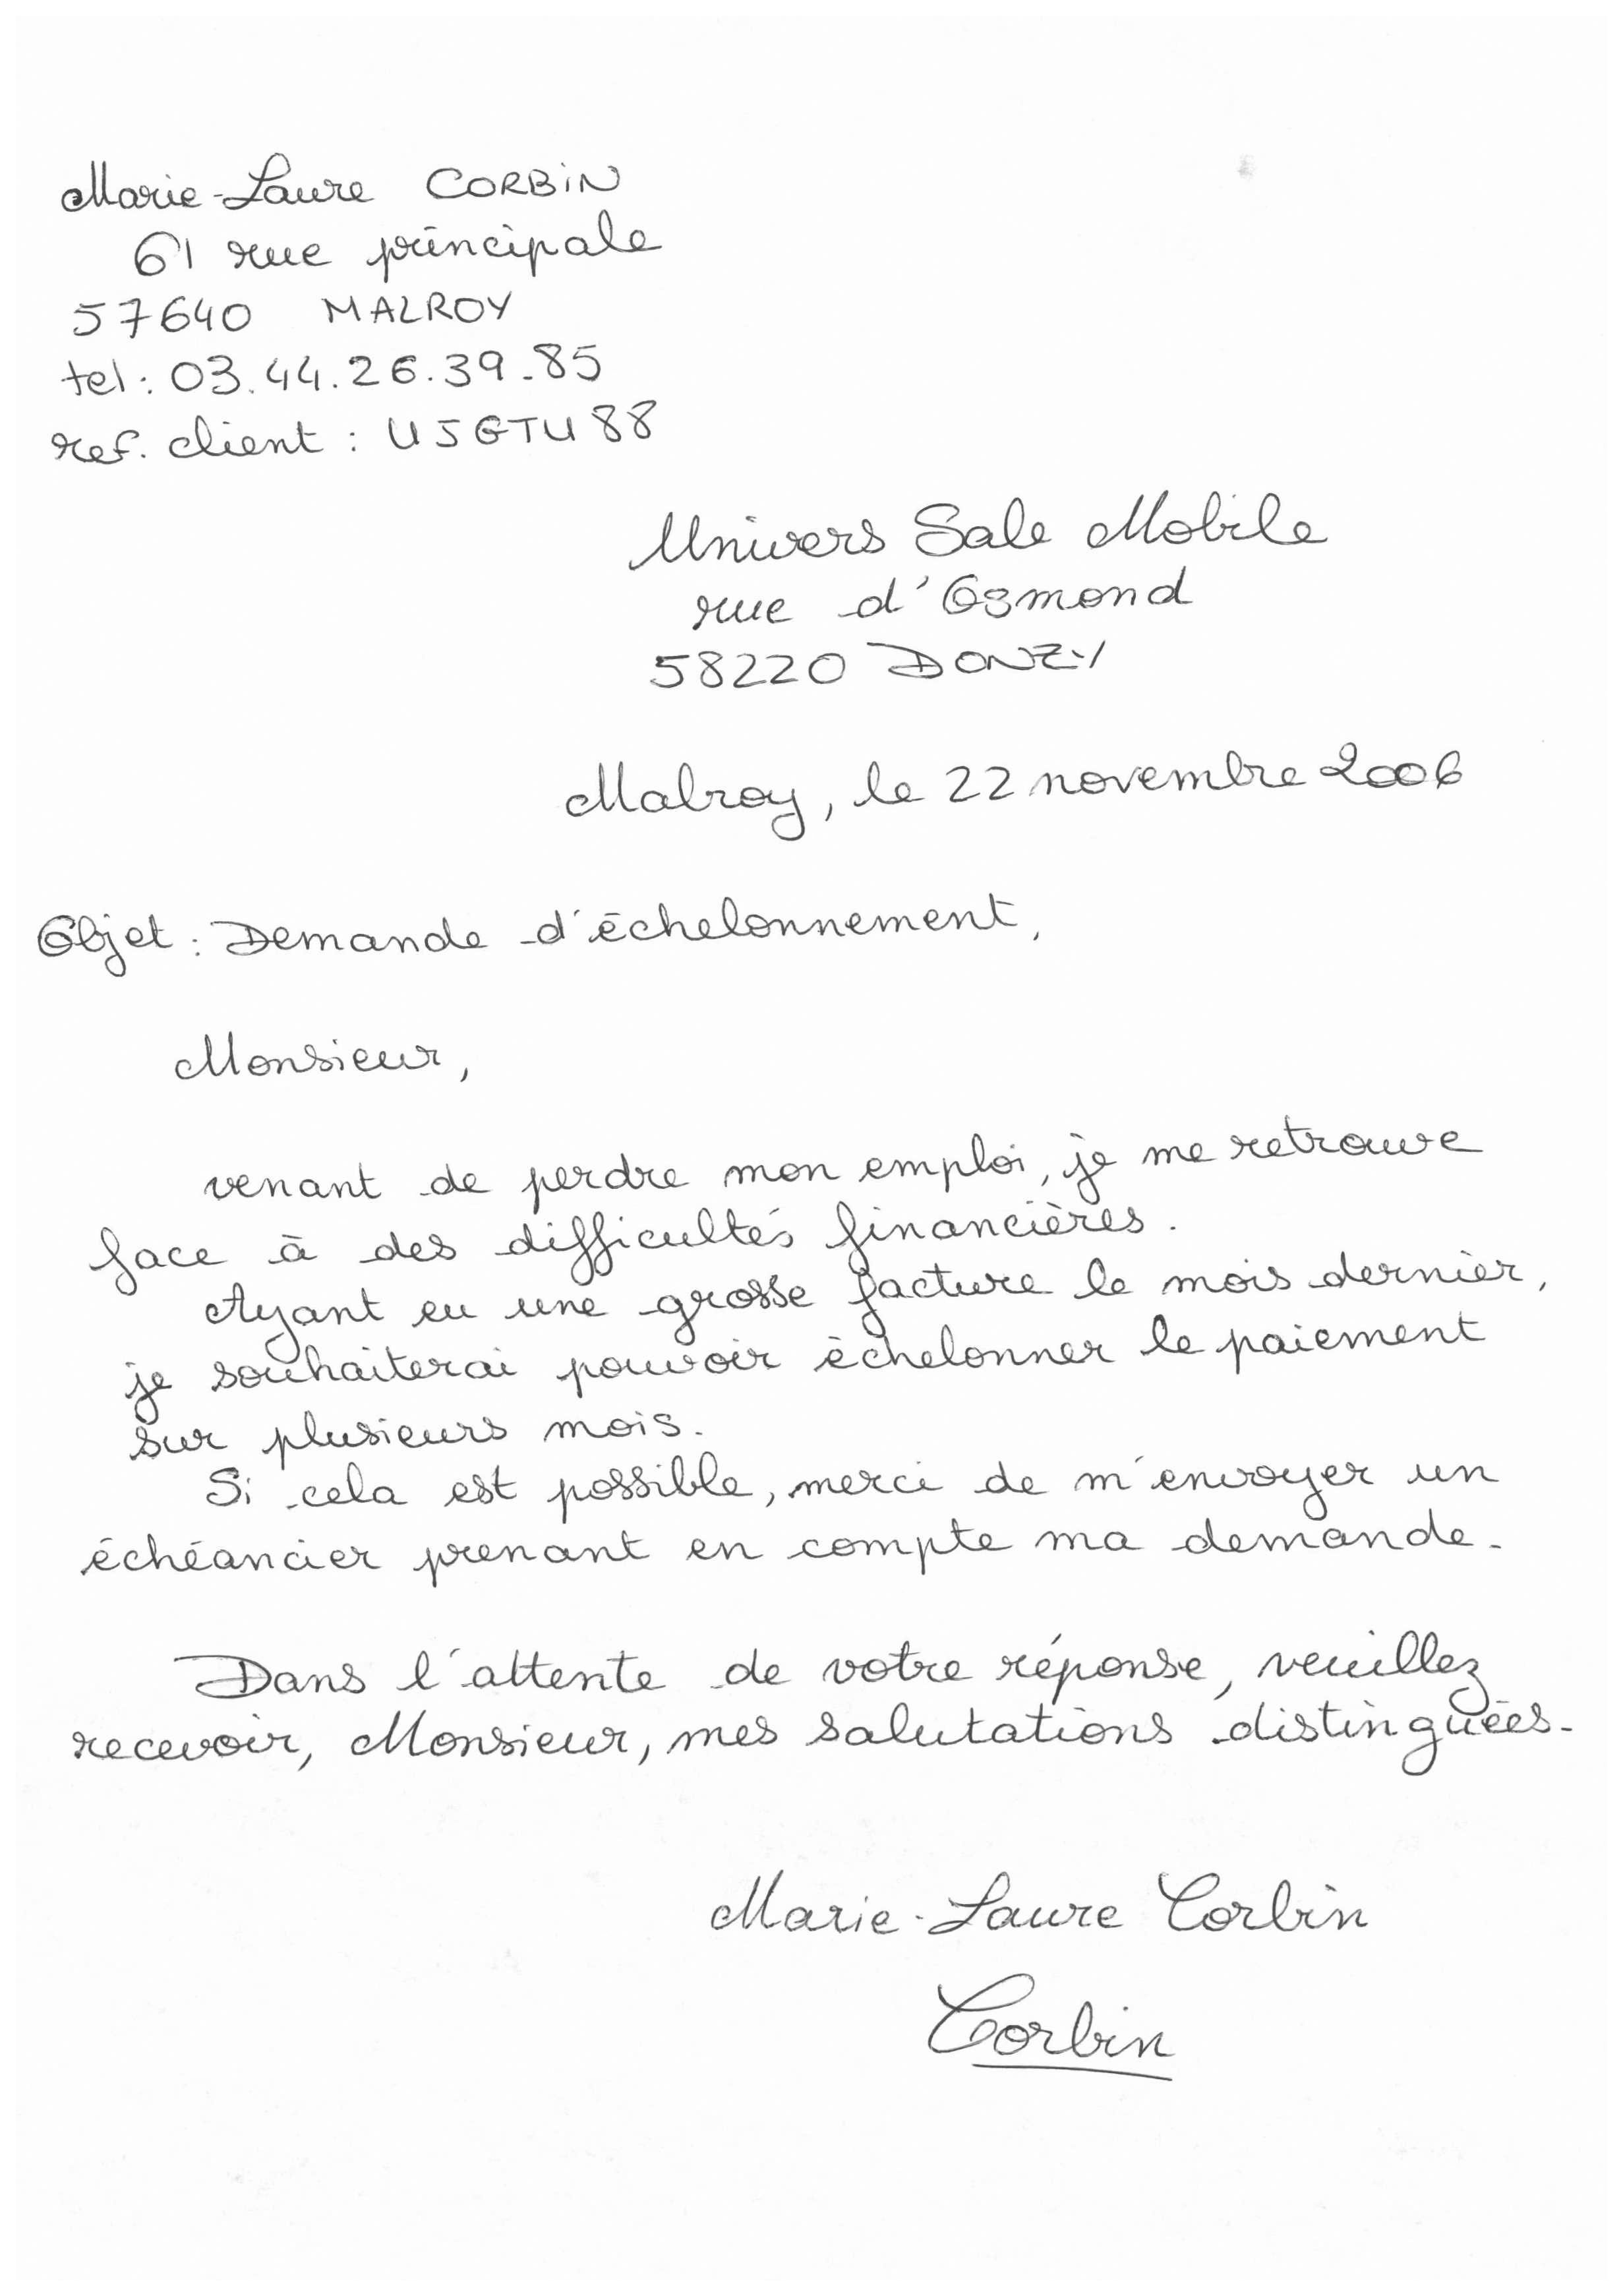 Marie-Laure CORBIN
61 rue principale
57640 MALROY
tel : 03.44.26.39.85
ref. client : USGTU88
Univers Sale Mobile
rue d'Osmond
58220 DONZY
Malroy, le 22 novembre 2006
Objet : Demande d'échelonnement,
Monsieur,
venant de perdre mon emploi, je me retrouve
face à des difficultés financières.
Ayant eu une grosse facture le mois dernier,
je souhaiterai pouvoir échelonner le paiement
sur plusieurs mois.
Si cela est possible, merci de m'envoyer un
échéancier prenant en compte ma demande.
Dans l'attente de votre réponse, veuillez
recevoir, Monsieur, mes salutations distinguées.
Marie-Laure Corbin
Corbin